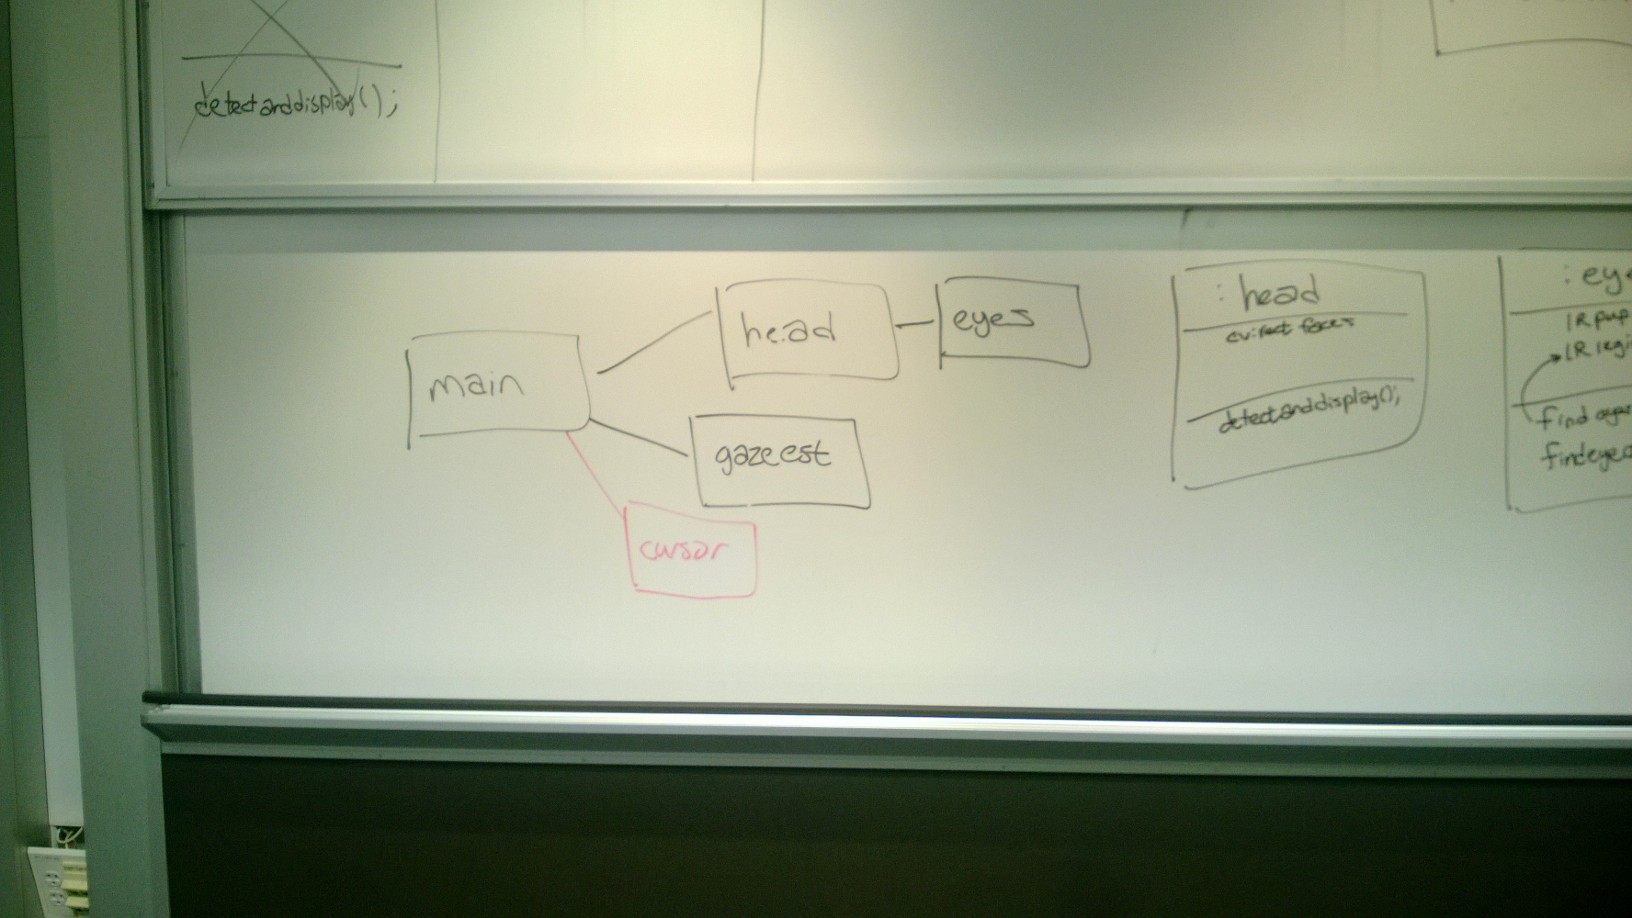 detectanddisplay();
main
head
eyes
gazeest
cursor
: head
cv::rect faces
detectanddisplay();
: eye
LR pup
LR regi
find
findeye